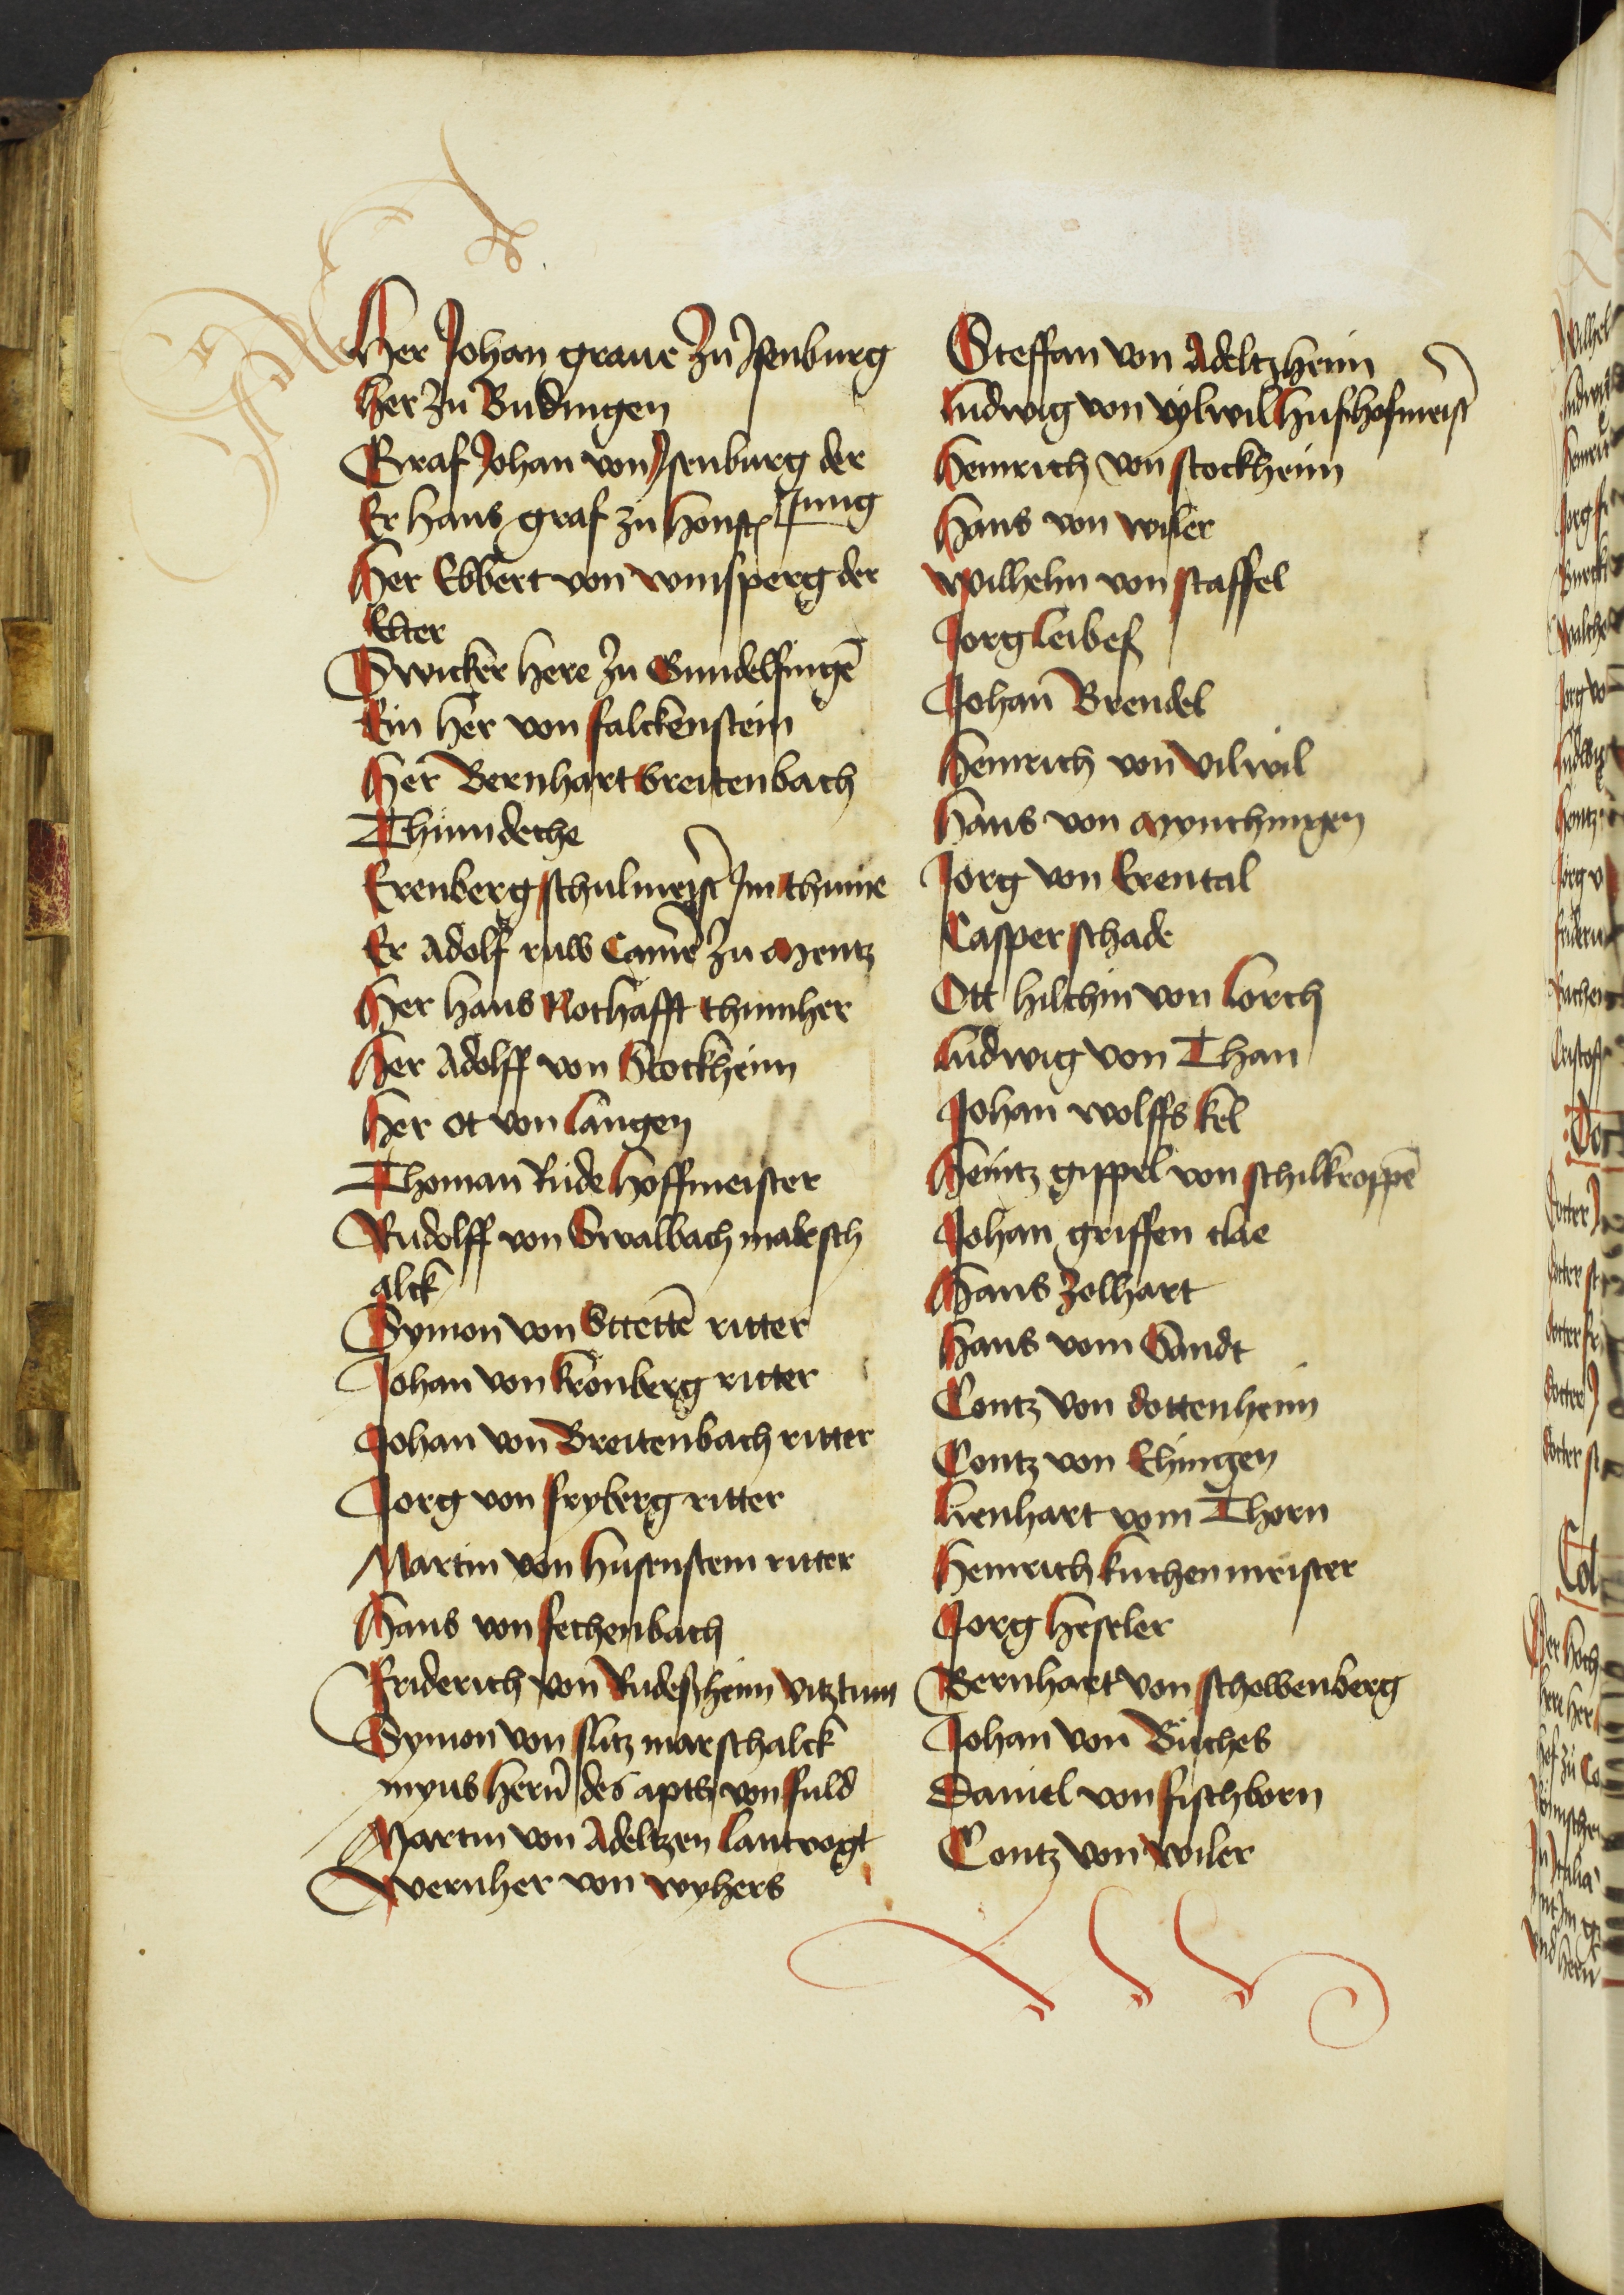 Her Johan graue zu Jsenburg
her zu Budingen
Graf Johan von Jsenburg der
Jung
Er hans graf zu honst
Her Ebbert von winsperg der
Elter
Swicker here zu Gundelfingē
Ein her von falckenstein
Her Bernhart breitenbach
Thumdeche
Erenberg schulmeist Jm thume
Er Adolf ruw Camē zu Mentz
Her hans Nothafft thumher
Her Adolff von Stockheim
Her Ot von langen
Thoman Rude hoffmeister
Rudolff von Swalbach marsch
alck
Symon von Stettē ritter
Johan von kronberg ritter
Johan von Breitenbach ritter
Jorg von fryberg ritter
Martin von husenstem ritter
Hans von fechenbach
Friderich von Rudeßheim vitztum
Symon von slitz marschalck
myns hern des apts von fuld
Martin von Adeltzen lantvogt
Wernher von wyhers
Steffan von Adeltzheim
Ludwig von vylwil hußhofmeist
Heinrich von stockheim
Hans von wiler
Wilhelm von staffel
Jorg leibef
Johan Brendel
Heinrich von vilwil
Hans von Mynchingen
Jorg von Erental
Casper schade
Ott hilchin von lorch
Ludwig von Than
Johan wolffs kel
Heintz gippel von schilkroppē
Johan griffen clae
Hans Zolhart
Hans vom Sandt
Contz von dottenheim
Contz von Ehingen
Lienhart vom Thorn
Heinrich kuchenmeister
Jorg heseler
Bernhart von schowenberg
Johan von Buches
Daniel von fischborn
Contz von wiler